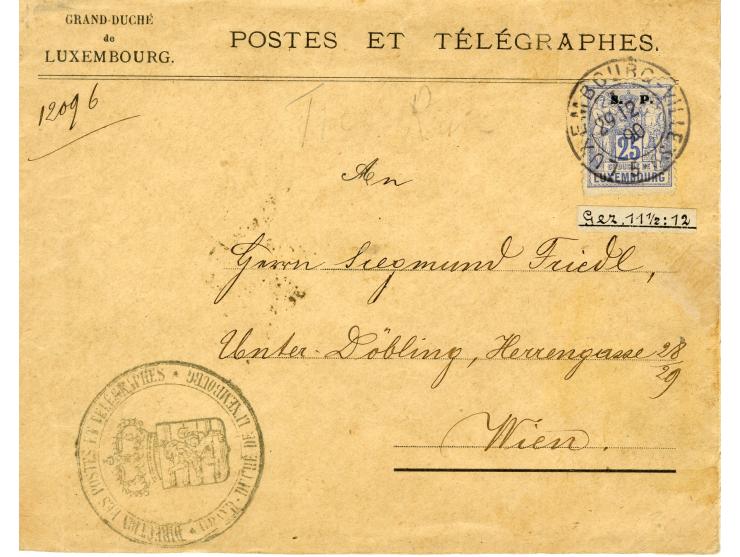 GRAND-DUCHÉ
de
LUXEMBOURG.
POSTES ET TÉLÉGRAPHES.
12096
LUXEMBOURG-VILLE
29 12
90
S. P.
25
LUXEMBOURG
Gez. 11½:12
An
Herrn Siegmund Friedl,
Unter-Döbling, Herrengasse 28/29
Wien.
DIRECTION DES POSTES ET TÉLÉGRAPHES * GRAND-DUCHÉ DE LUXEMBOURG *